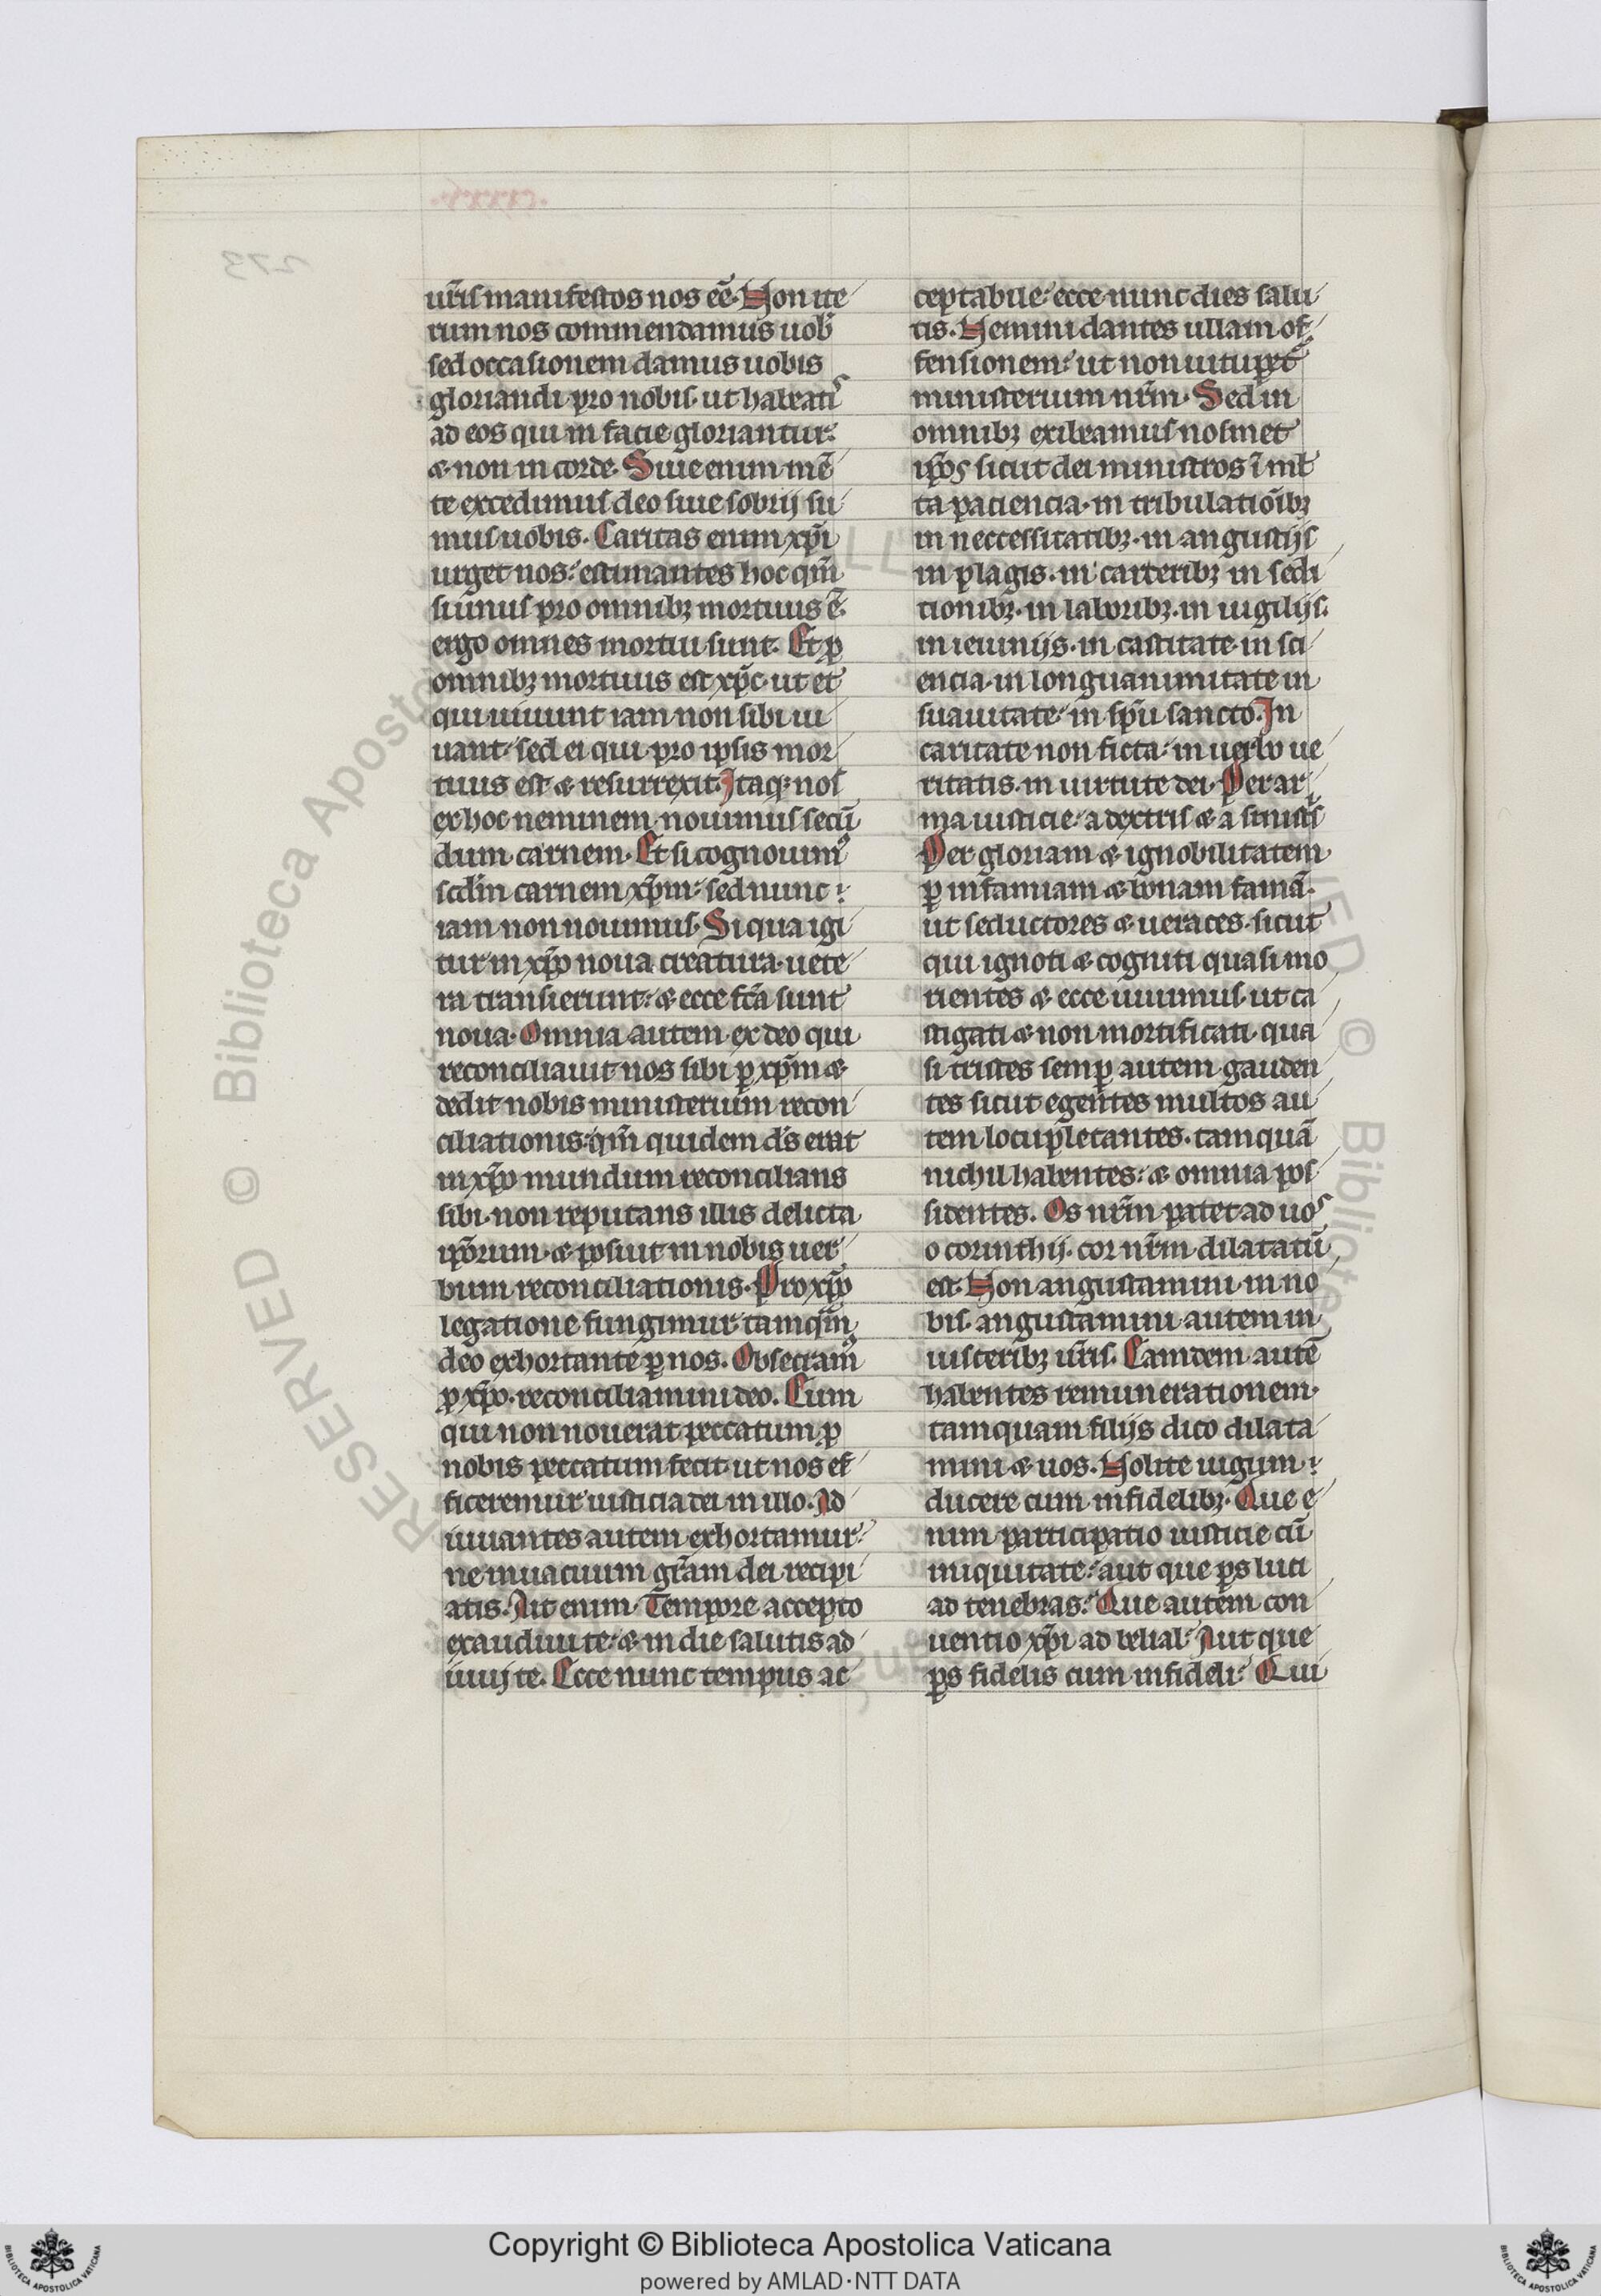 ur̃is manifestos nos eẽ. Non ite
rum nos commendamus uob̾
sed occasionem damus uobis
gloriandi pro nobis. ut habeatis
ad eos qui in facie gloriantur:
⁊ non in corde. Siue enim mẽ
te excedimus deo siue sobrij su
mus uobis. Caritas enim xp̃i
urget nos: estimantes hoc qm̃
si unus pro omnibꝫ mortuus ẽ.
ergo omnes mortui sunt. Et ꝓ
omnibꝫ mortuus est xp̃c. ut et
qui uiuunt iam non sibi ui
uant: sed ei qui pro ipsis mor
tuus est ⁊ resurrexit. Itaqꝫ nos
ex hoc neminem nouimus secũ
dum carnem. Et si cognouimꝰ
scd̾m carnem xp̃m: sed nunc
iam non nouimus. Si qua igi
tur in xp̃o noua creatura. uete
ra transierunt: ⁊ ecce fc̃a sunt
noua. Omnia autem ex deo qui
reconciliauit nos sibi ꝑ xp̃m ⁊
dedit nobis ministerium recon
ciliationis: qm̃ quidem ds̃ erat
in xp̃o mundum reconcilians
sibi. non reputans illis delicta
ip̃orum. ⁊ posuit in nobis uer
bum reconciliationis. Pro xp̃o
legatione fungimur tamq̃m
deo exhortante ꝑ nos. Obsecramꝰ
ꝓ xp̃o. reconciliamini deo. Eum
qui non nouerat peccatum ꝓ
nobis peccatum fecit. ut nos ef
ficeremur iusticia dei in illo. Ad
iuuantes autem exhortamur:
ne in uacuum gr̃am dei recipi
atis. Ait enim. Tempore accepto
exaudiui te: ⁊ in die salutis ad
iuuij te. Ecce nunc tempus ac
ceptabile: ecce nunc dies salu
tis. Nemini dantes ullam of
fensionem: ut non uitupet̃
ministerium nr̃m. Sed in
omnibꝫ exibeamus nosmet
ip̃os sicut dei ministros ĩ ml̾
ta paciencia. in tribulatiõibꝫ
in neccessitatibꝫ. in angustijs
in plagis. in carceribꝫ in sedi
tionibꝫ. in laboribꝫ. in uigilijs.
in ieiunijs. in castitate. in sci
encia. in longuanimitate in
suauitate: in sp̃u sancto. In
caritate non ficta: in uerbo ue
ritatis. in uirtute dei. Per ar
ma iusticie: a dextris ⁊ a sinistˢ
Per gloriam ⁊ ignobilitatem
ꝑ infamiam ⁊ bonam famã.
ut seductores ⁊ ueraces. sicut
qui ignoti ⁊ cogniti quasi mo
rientes ⁊ ecce uiuimus. ut ca
stigati ⁊ non mortificati. qua
si tristes semꝑ autem gauden
tes sicut egentes multos au
tem locupletantes. tamquã
nichil habentes: ⁊ omnia pos
sidentes. Os nr̃m patet ad uos
o corinthij. cor nr̃m dilatatũ
est. Non angustamini in no
bis. angustamini autem in
uisceribꝫ ur̃is. Eamdem autẽ
habentes remunerationem.
tamquam filijs dico dilata
mini ⁊ uos. Nolite iugum
ducere cum infidelibꝫ. Que e
nim participatio iusticie cũ
iniquitate: aut que ps luci
ad tenebras: Que autem con
uentio xp̃i ad belial: Aut que
ps fidelis cum infideli: Qui
Copyright © Biblioteca Apostolica Vaticana
powered by AMLAD·NTT DATA